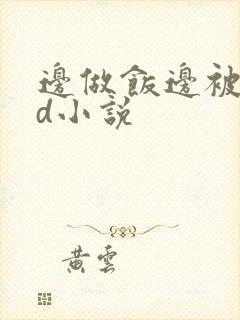 邊做飯邊被
d小說
黃雲